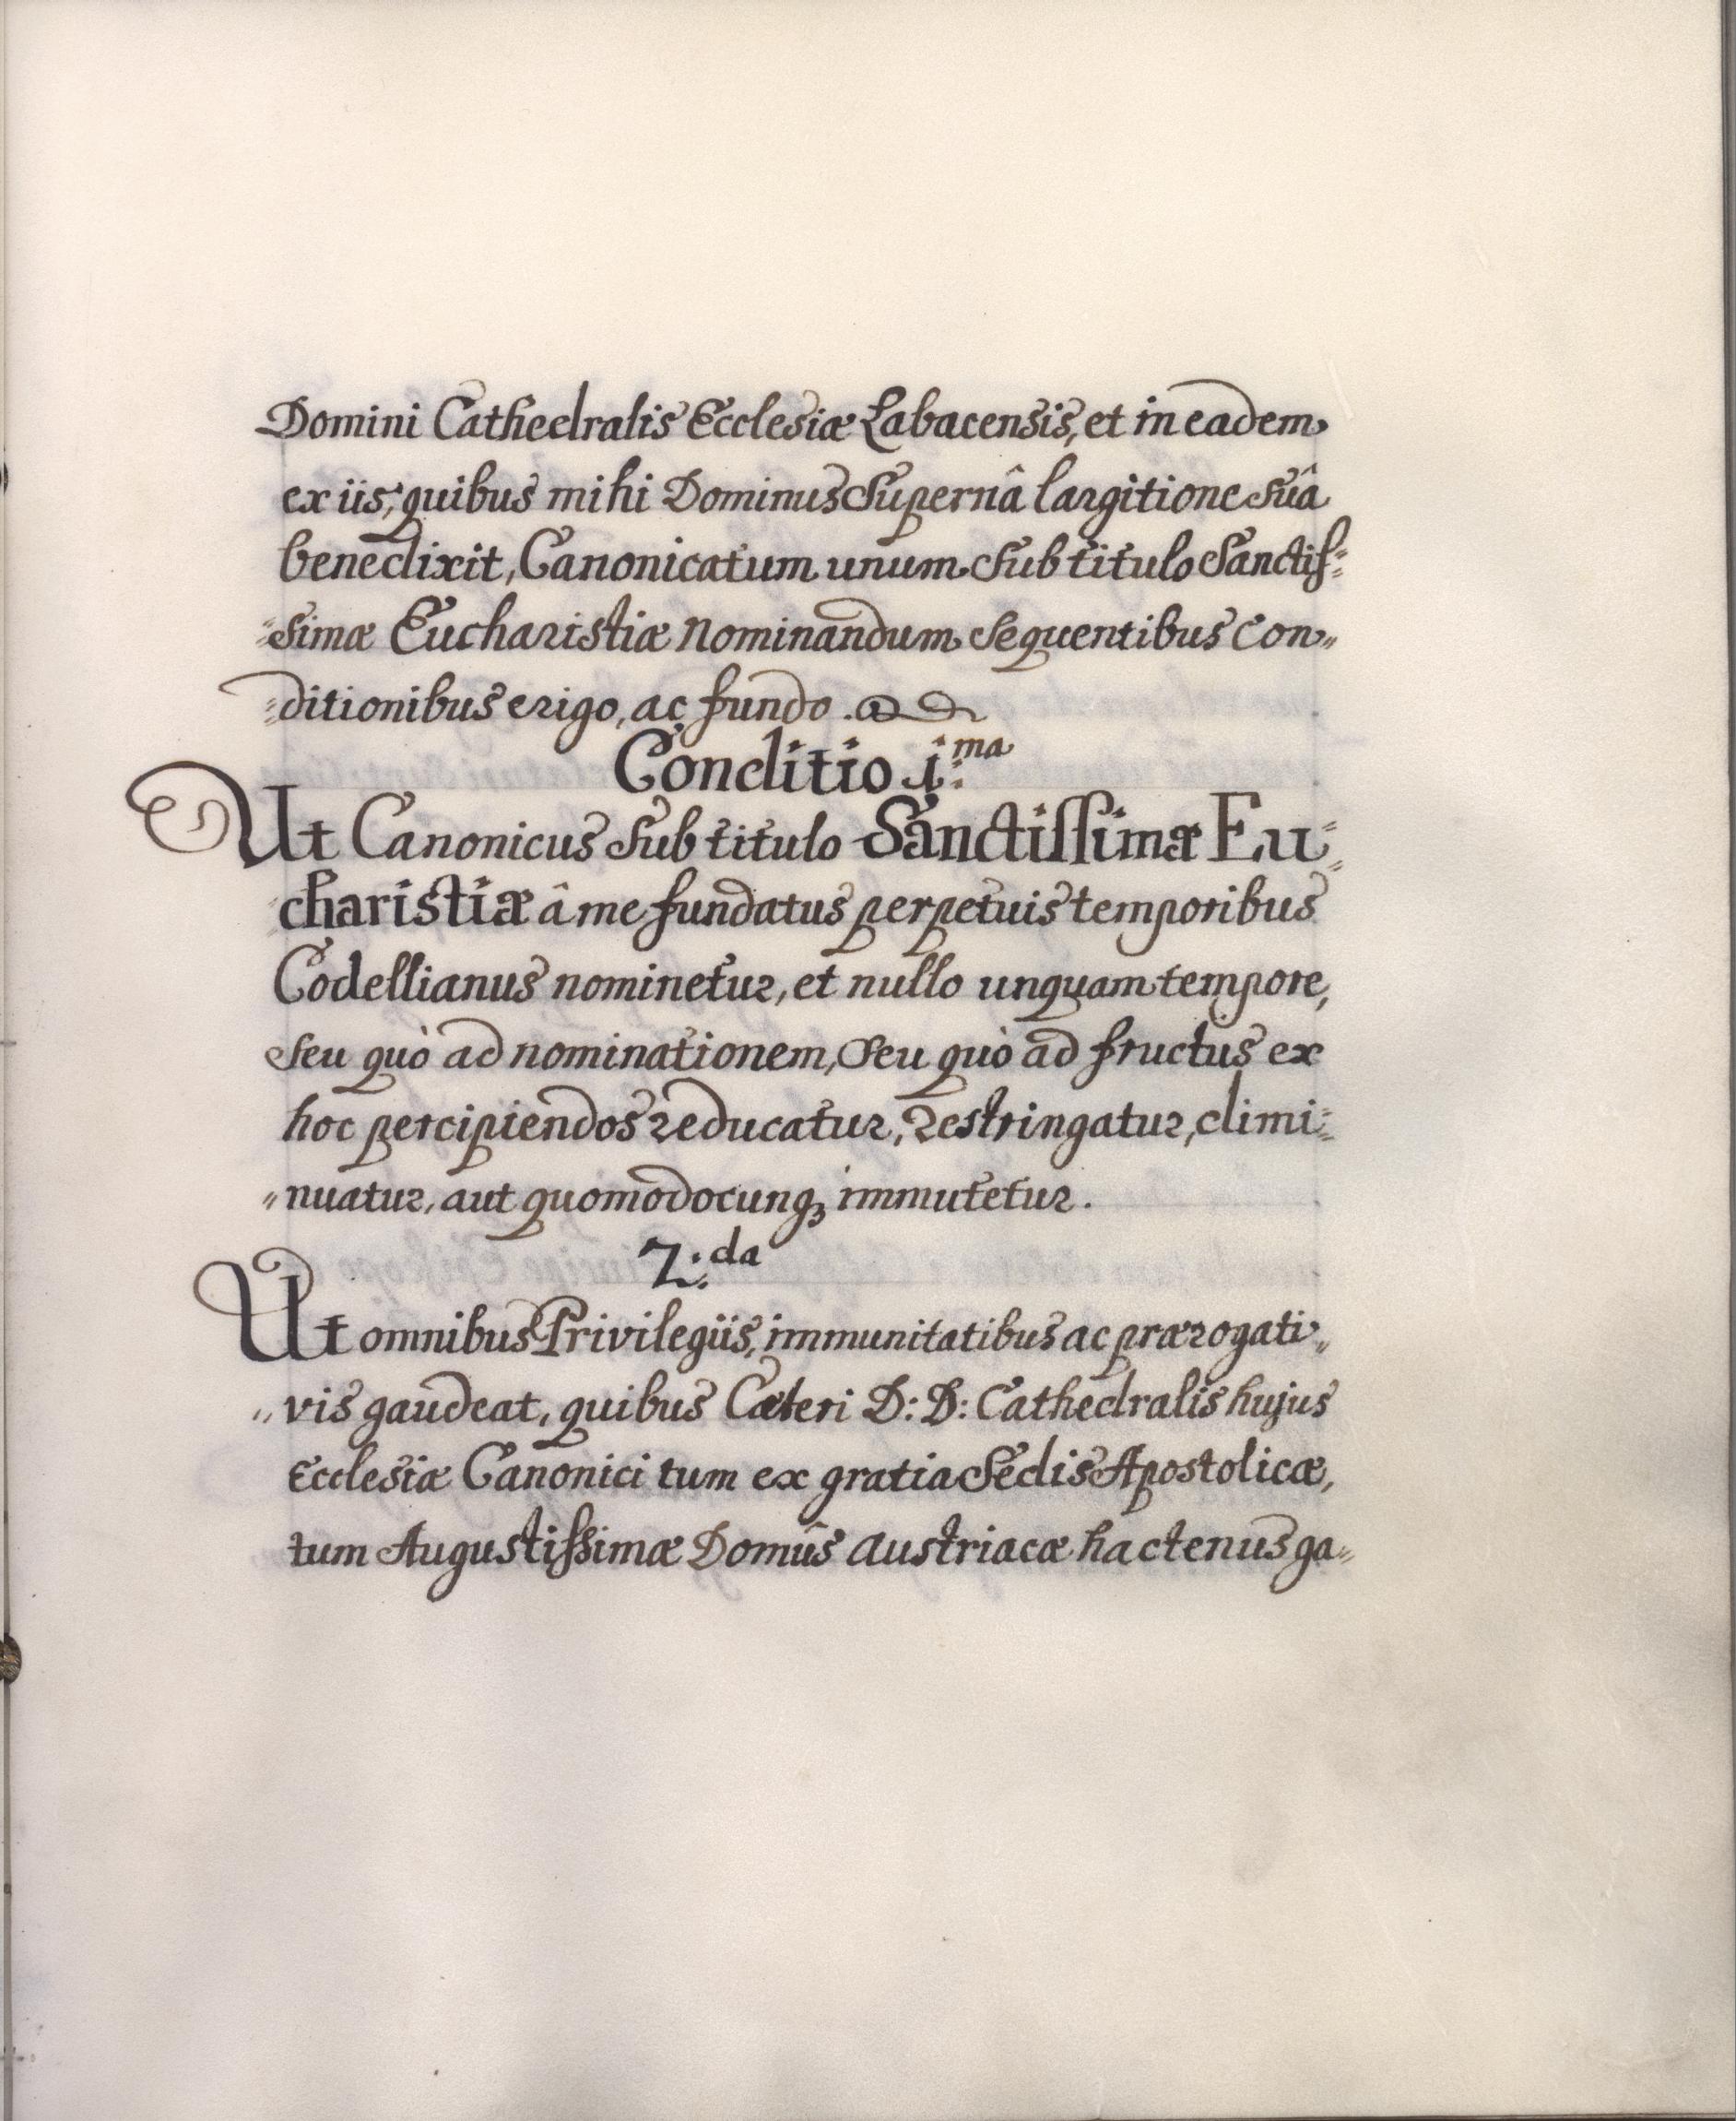 Domini Cathedralis Ecclesiæ Labacensis, et in eadem
ex iis, quibus mihi Dominus Supernâ largitione Suâ
benedixit, Canonicatum unum Sub titulo Sanctis=
=Simæ Eucharistiæ Nominandum Sequentibus Con=
=ditionibus erigo, ac fundo.
Conditio i:ma
Ut Canonicus Sub titulo Sanctissimæ Eu=
charistiæ â me fundatus perpetuis temporibus
Codellianus nominetur, et nullo unquam tempore,
Seu quò ad nominationem, Seu quò ad fructus ex
hoc percipiendos reducatur, restringatur, dimi=
=nuatur, aut quomodocunq; immutetur.
2:da
Ut omnibus Privilegiis, immunitatibus ac prærogati=
=vis gaudeat, quibus Cæteri D: D: Cathedralis hujus
Ecclesiæ Canonici tum ex gratia Sedis Apostolicæ,
tum Augustissimæ Domûs Austriacæ hactenus ga=